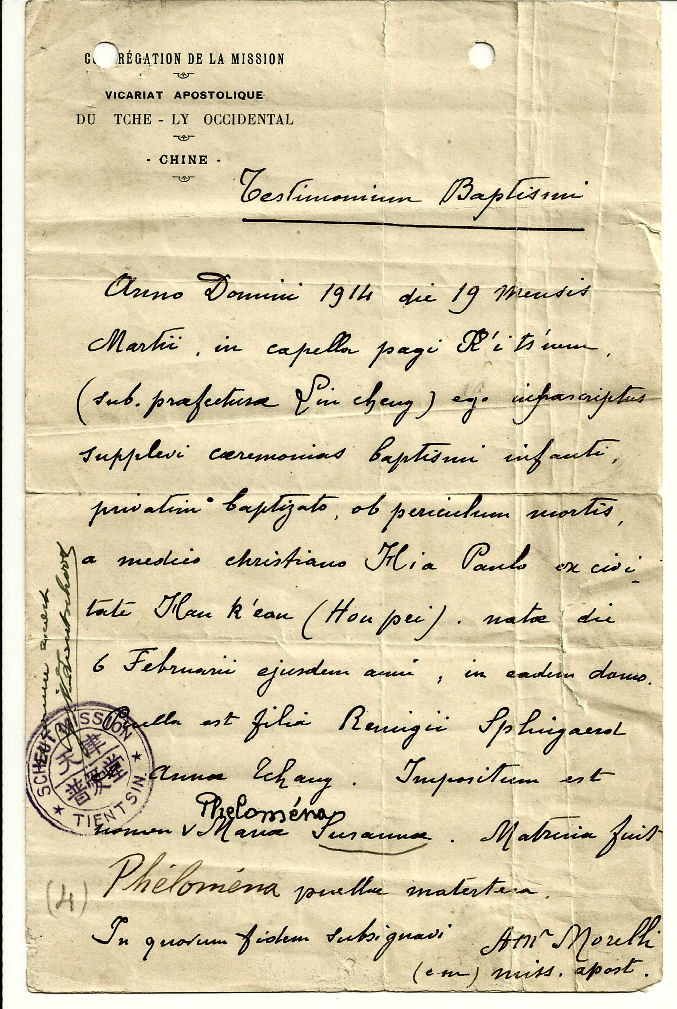 CONGRÉGATION DE LA MISSION
VICARIAT APOSTOLIQUE
DU TCHE - LY OCCIDENTAL
- CHINE -
Testimonium Baptismi
Anno Domini 1914 die 19 mensis
Martii, in capella pagi K'i ts'uen,
(sub.præfecturæ Lin cheng) ego infrascriptus
supplevi cæremonias baptismi infanti,
privatim baptizato, ob periculum mortis,
a medico christiano Hia Paulo ex civi-
tate Han k'eou (Hou pei). natæ die
6 Februarii ejusdem anni, in eadem domo.
Puella est filia Remigii Splingaerd
Annæ Tchang. Impositum est
Pheloména
nomen v Mariæ Susannæ. Matrina fuit
Phéloména puellæ matertera.
(4)
In quorum fidem subsignavi
Ant Morelli
(c m) miss. apost.
SCHEUT MISSION
天津
普爱堂
★ TIENTSIN ★